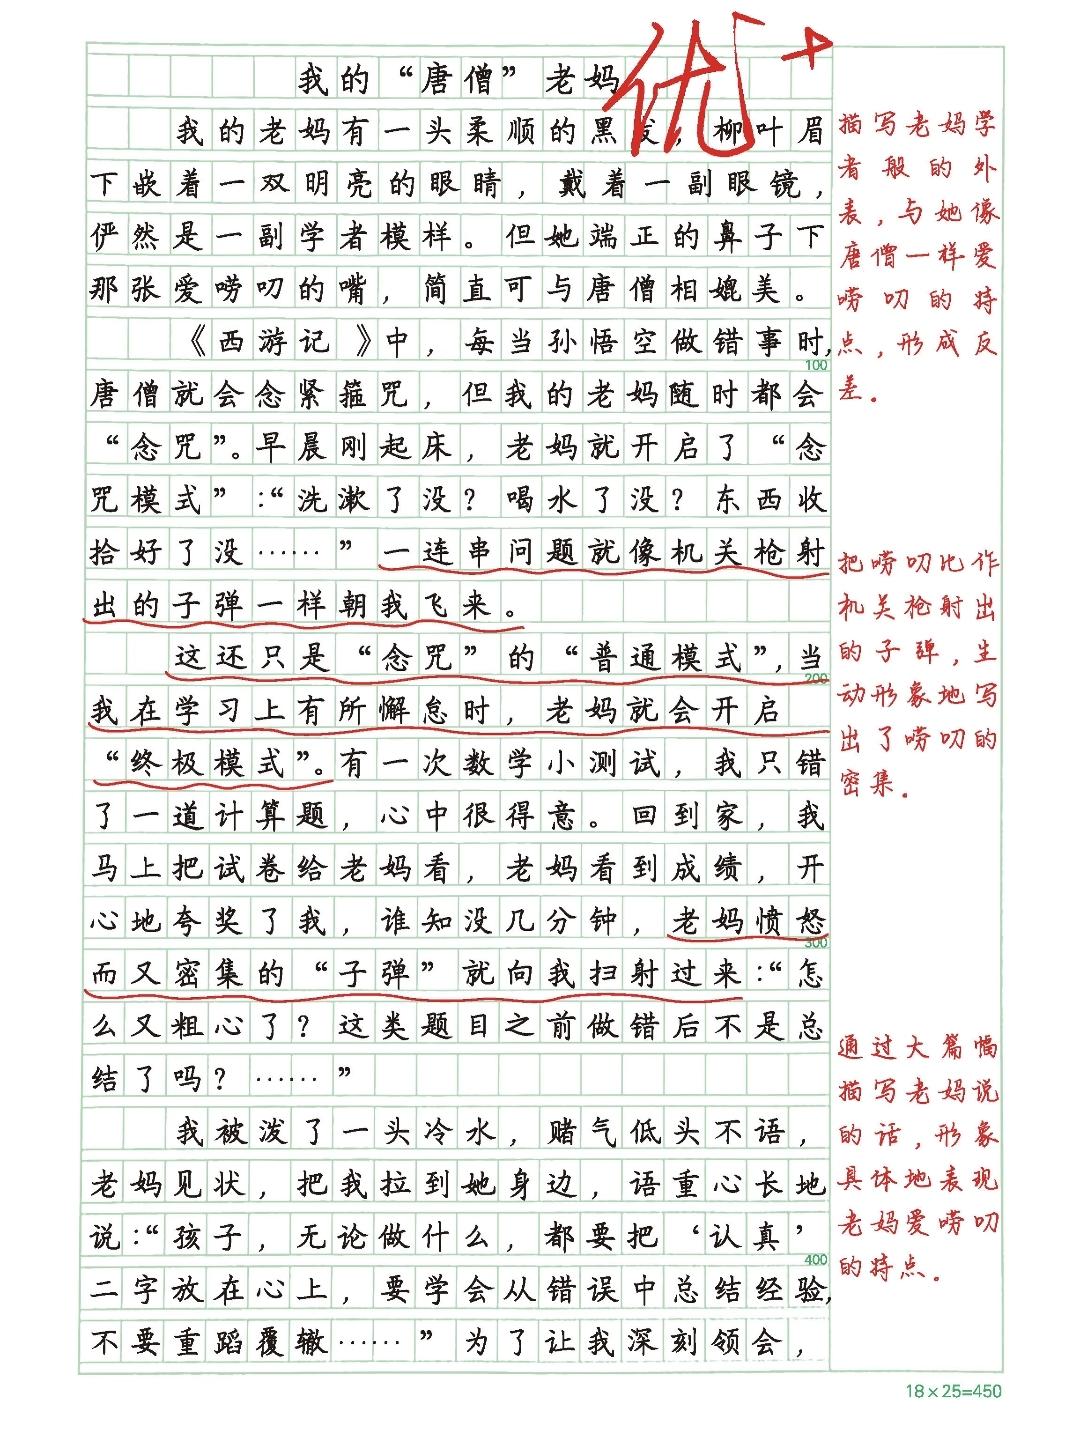 我的“唐僧”老妈
优+
我的老妈有一头柔顺的黑发，柳叶眉
下嵌着一双明亮的眼睛，戴着一副眼镜，
俨然是一副学者模样。但她端正的鼻子下
那张爱唠叨的嘴，简直可与唐僧相媲美。
《西游记》中，每当孙悟空做错事时，
100
唐僧就会念紧箍咒，但我的老妈随时都会
“念咒”。早晨刚起床，老妈就开启了“念
咒模式”：“洗漱了没？喝水了没？东西收
拾好了没……”一连串问题就像机关枪射
出的子弹一样朝我飞来。
这还只是“念咒”的“普通模式”，当
200
我在学习上有所懈怠时，老妈就会开启
“终极模式”。有一次数学小测试，我只错
了一道计算题，心中很得意。回到家，我
马上把试卷给老妈看，老妈看到成绩，开
心地夸奖了我，谁知没几分钟，老妈愤怒
300
而又密集的“子弹”就向我扫射过来：“怎
么又粗心了？这类题目之前做错后不是总
结了吗？……”
我被泼了一头冷水，赌气低头不语，
老妈见状，把我拉到她身边，语重心长地
说：“孩子，无论做什么，都要把‘认真’
400
二字放在心上，要学会从错误中总结经验，
不要重蹈覆辙……”为了让我深刻领会，
描写老妈学
者般的外
表，与她像
唐僧一样爱
唠叨的特
点，形成反
差．
把唠叨比作
机关枪射出
的子弹，生
动形象地写
出了唠叨的
密集．
通过大篇幅
描写老妈说
的话，形象
具体地表现
老妈爱唠叨
的特点．
18×25=450